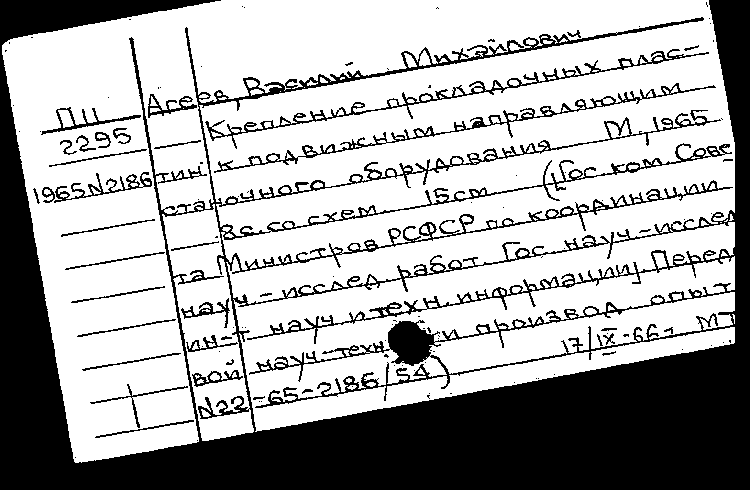 Агеев, Василий Михайлович
П11
2295
1965 N2186
Крепление прокладочных плас-
тин к подвижным направляющим
станочного оборудования М., 1965
8с. со схем. 15см ([Гос. ком. Сове
та Министров РСФСР по координации
науч - исслед работ. Гос науч-исслед
ин-т науч и техн. информации]. Передо
вой науч-техн и производ. опыт
N22-65-2186/54)
17/IX-66г МТ